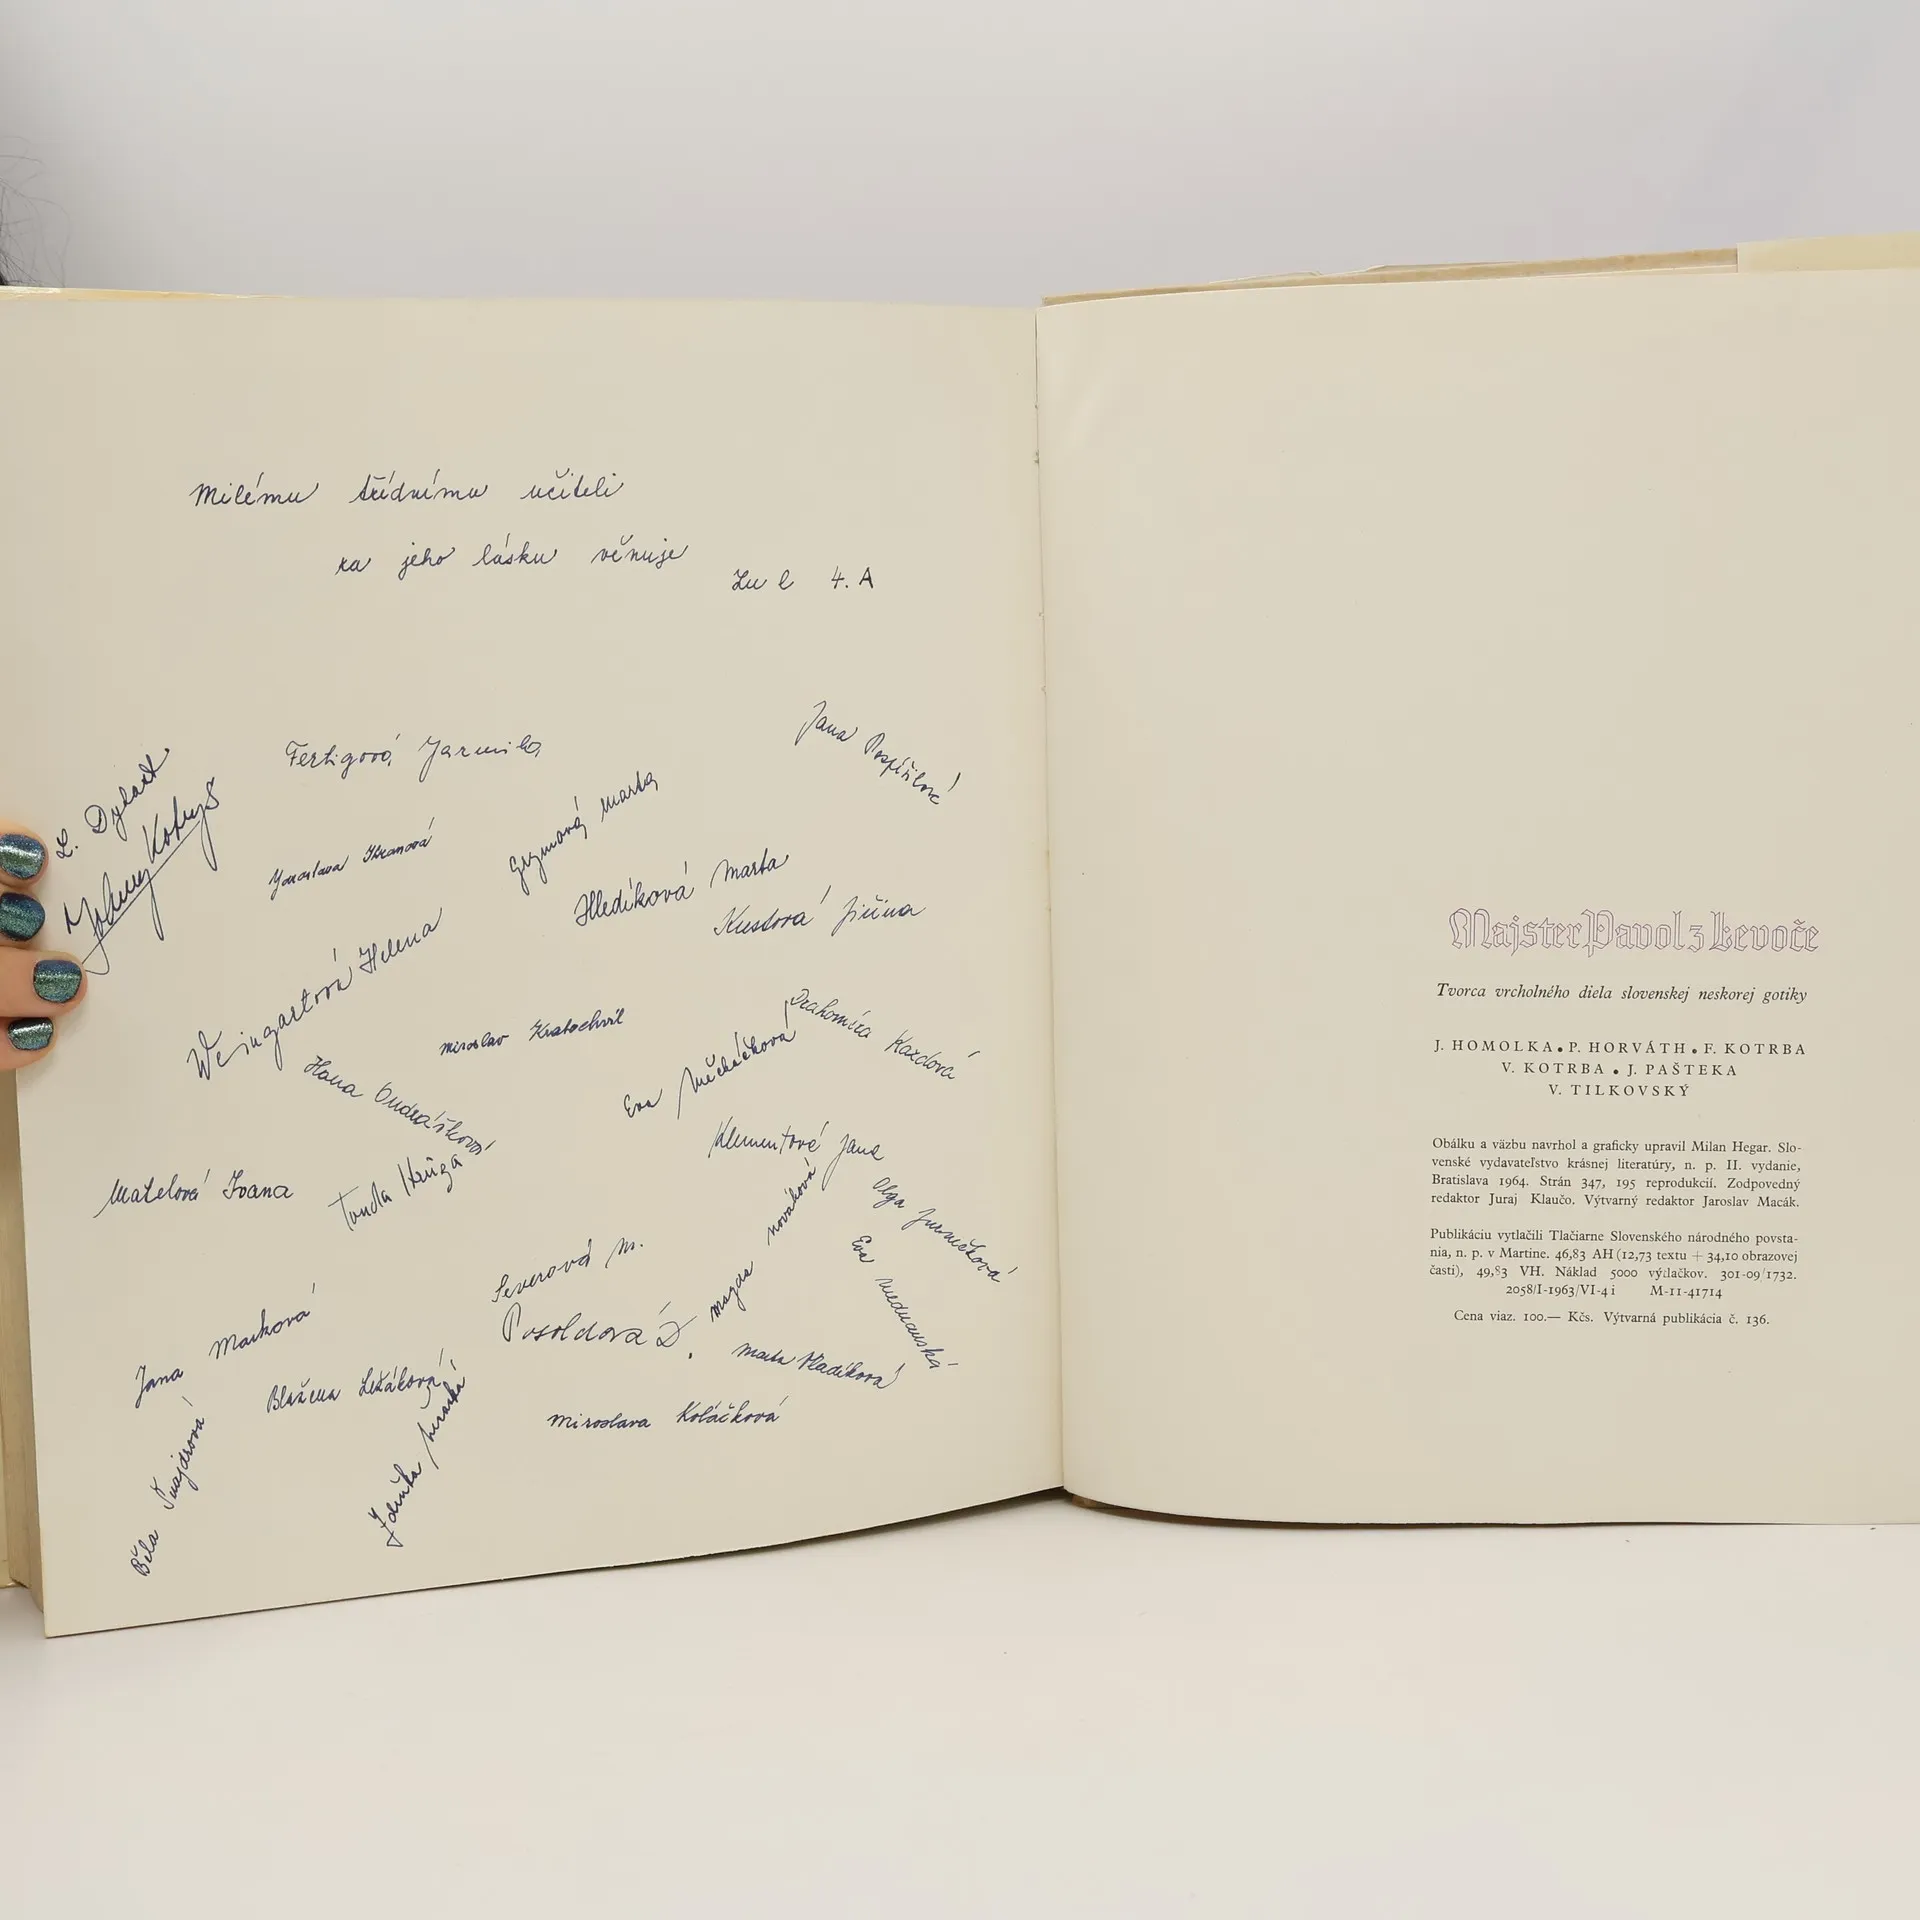 Milému třídnímu učiteli
za jeho lásku věnuje
4. A
Jana Pospíšilová
Fertigová Jarmila
Marta
Jaroslava
Hledíková Marta
Kustová Jiřina
Weingartová Helena
Miroslav Kratochvíl
Drahomíra Kazdová
Eva
Hana Ondrášková
Klementová Jana
Matelová Ivana
Tonda
Magda Nováková
Olga
Severová M.
Eva
Posoldová D.
Jana Marková
Marta Hladíková
Blažena Ležáková
Miroslava Koláčková
Běla Šnajdrová
Majster Pavol z Levoče
Tvorca vrcholného diela slovenskej neskorej gotiky
J. HOMOLKA • P. HORVÁTH • F. KOTRBA
V. KOTRBA • J. PAŠTEKA
V. TILKOVSKÝ
Obálku a väzbu navrhol a graficky upravil Milan Hegar. Slo-
venské vydavateľstvo krásnej literatúry, n. p. II. vydanie,
Bratislava 1964. Strán 347, 195 reprodukcií. Zodpovedný
redaktor Juraj Klaučo. Výtvarný redaktor Jaroslav Macák.
Publikáciu vytlačili Tlačiarne Slovenského národného povsta-
nia, n. p. v Martine. 46,83 AH (12,73 textu + 34,10 obrazovej
časti), 49,83 VH. Náklad 5000 výtlačkov. 301-09/1732.
2058/I-1963/VI-4 i M-11-41714
Cena viaz. 100.— Kčs. Výtvarná publikácia č. 136.